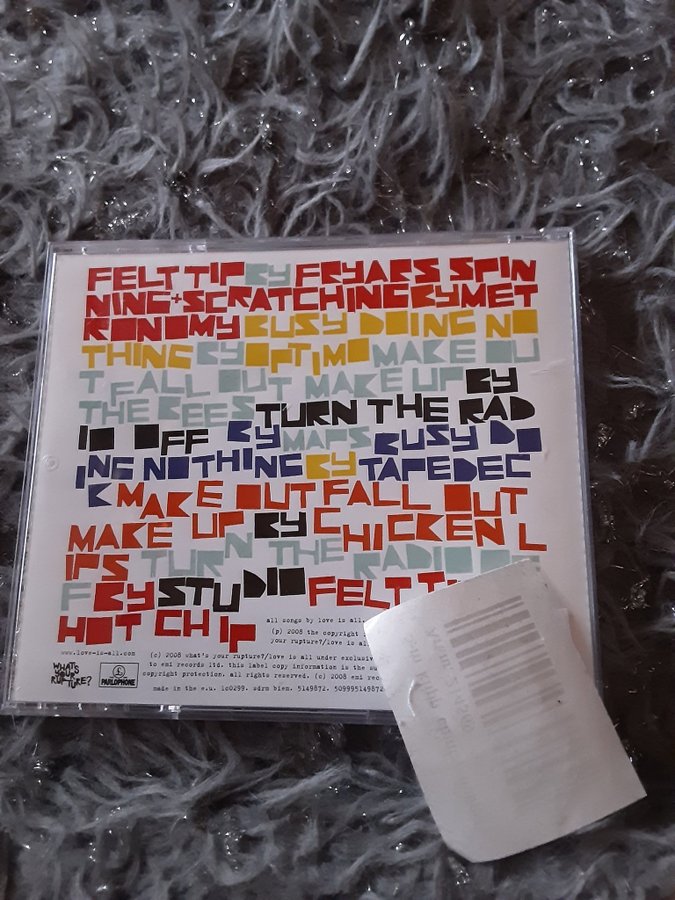 FELT TIP BY FRYARS SPIN
NING+SCRATCHING BY MET
RONOMY BUSY DOING NO
THING BY OPTIMO MAKE OU
T FALL OUT MAKE UP BY
THE BEES TURN THE RAD
IO OFF BY MAPS BUSY DO
ING NOTHING BY TAPEDEC
K MAKE OUT FALL OUT
MAKE UP BY CHICKEN L
IPS TURN THE RADIO OF
F BY STUDIO FELT
HOT CHIP
all songs by love is all.
(p) 2008 the copyright
your rupture?/love is
www.love-is-all.com
(c) 2008 what's your rupture?/love is all under exclusive
to emi records ltd. this label copy information is the
copyright protection. all rights reserved. (c) 2008 emi
made in the e.u. lc0299. sdrm biem. 5149872. 509995149872
WHAT'S YOUR RUPTURE?
PARLOPHONE